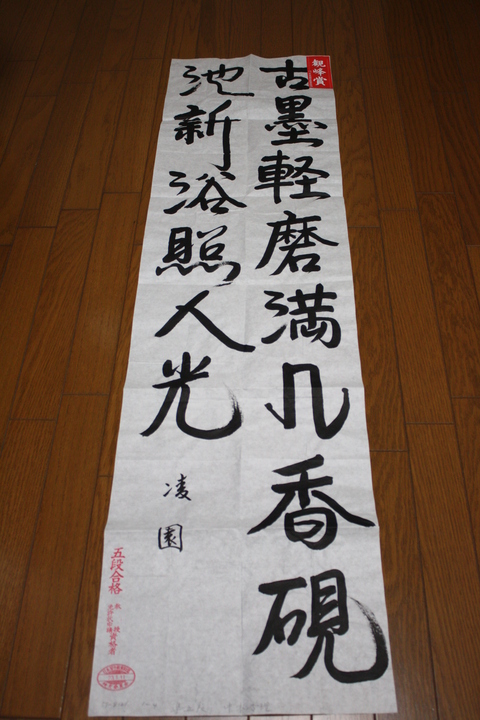 観峰賞
古墨軽磨満几香硯
池新浴照人光
凌園
五段合格